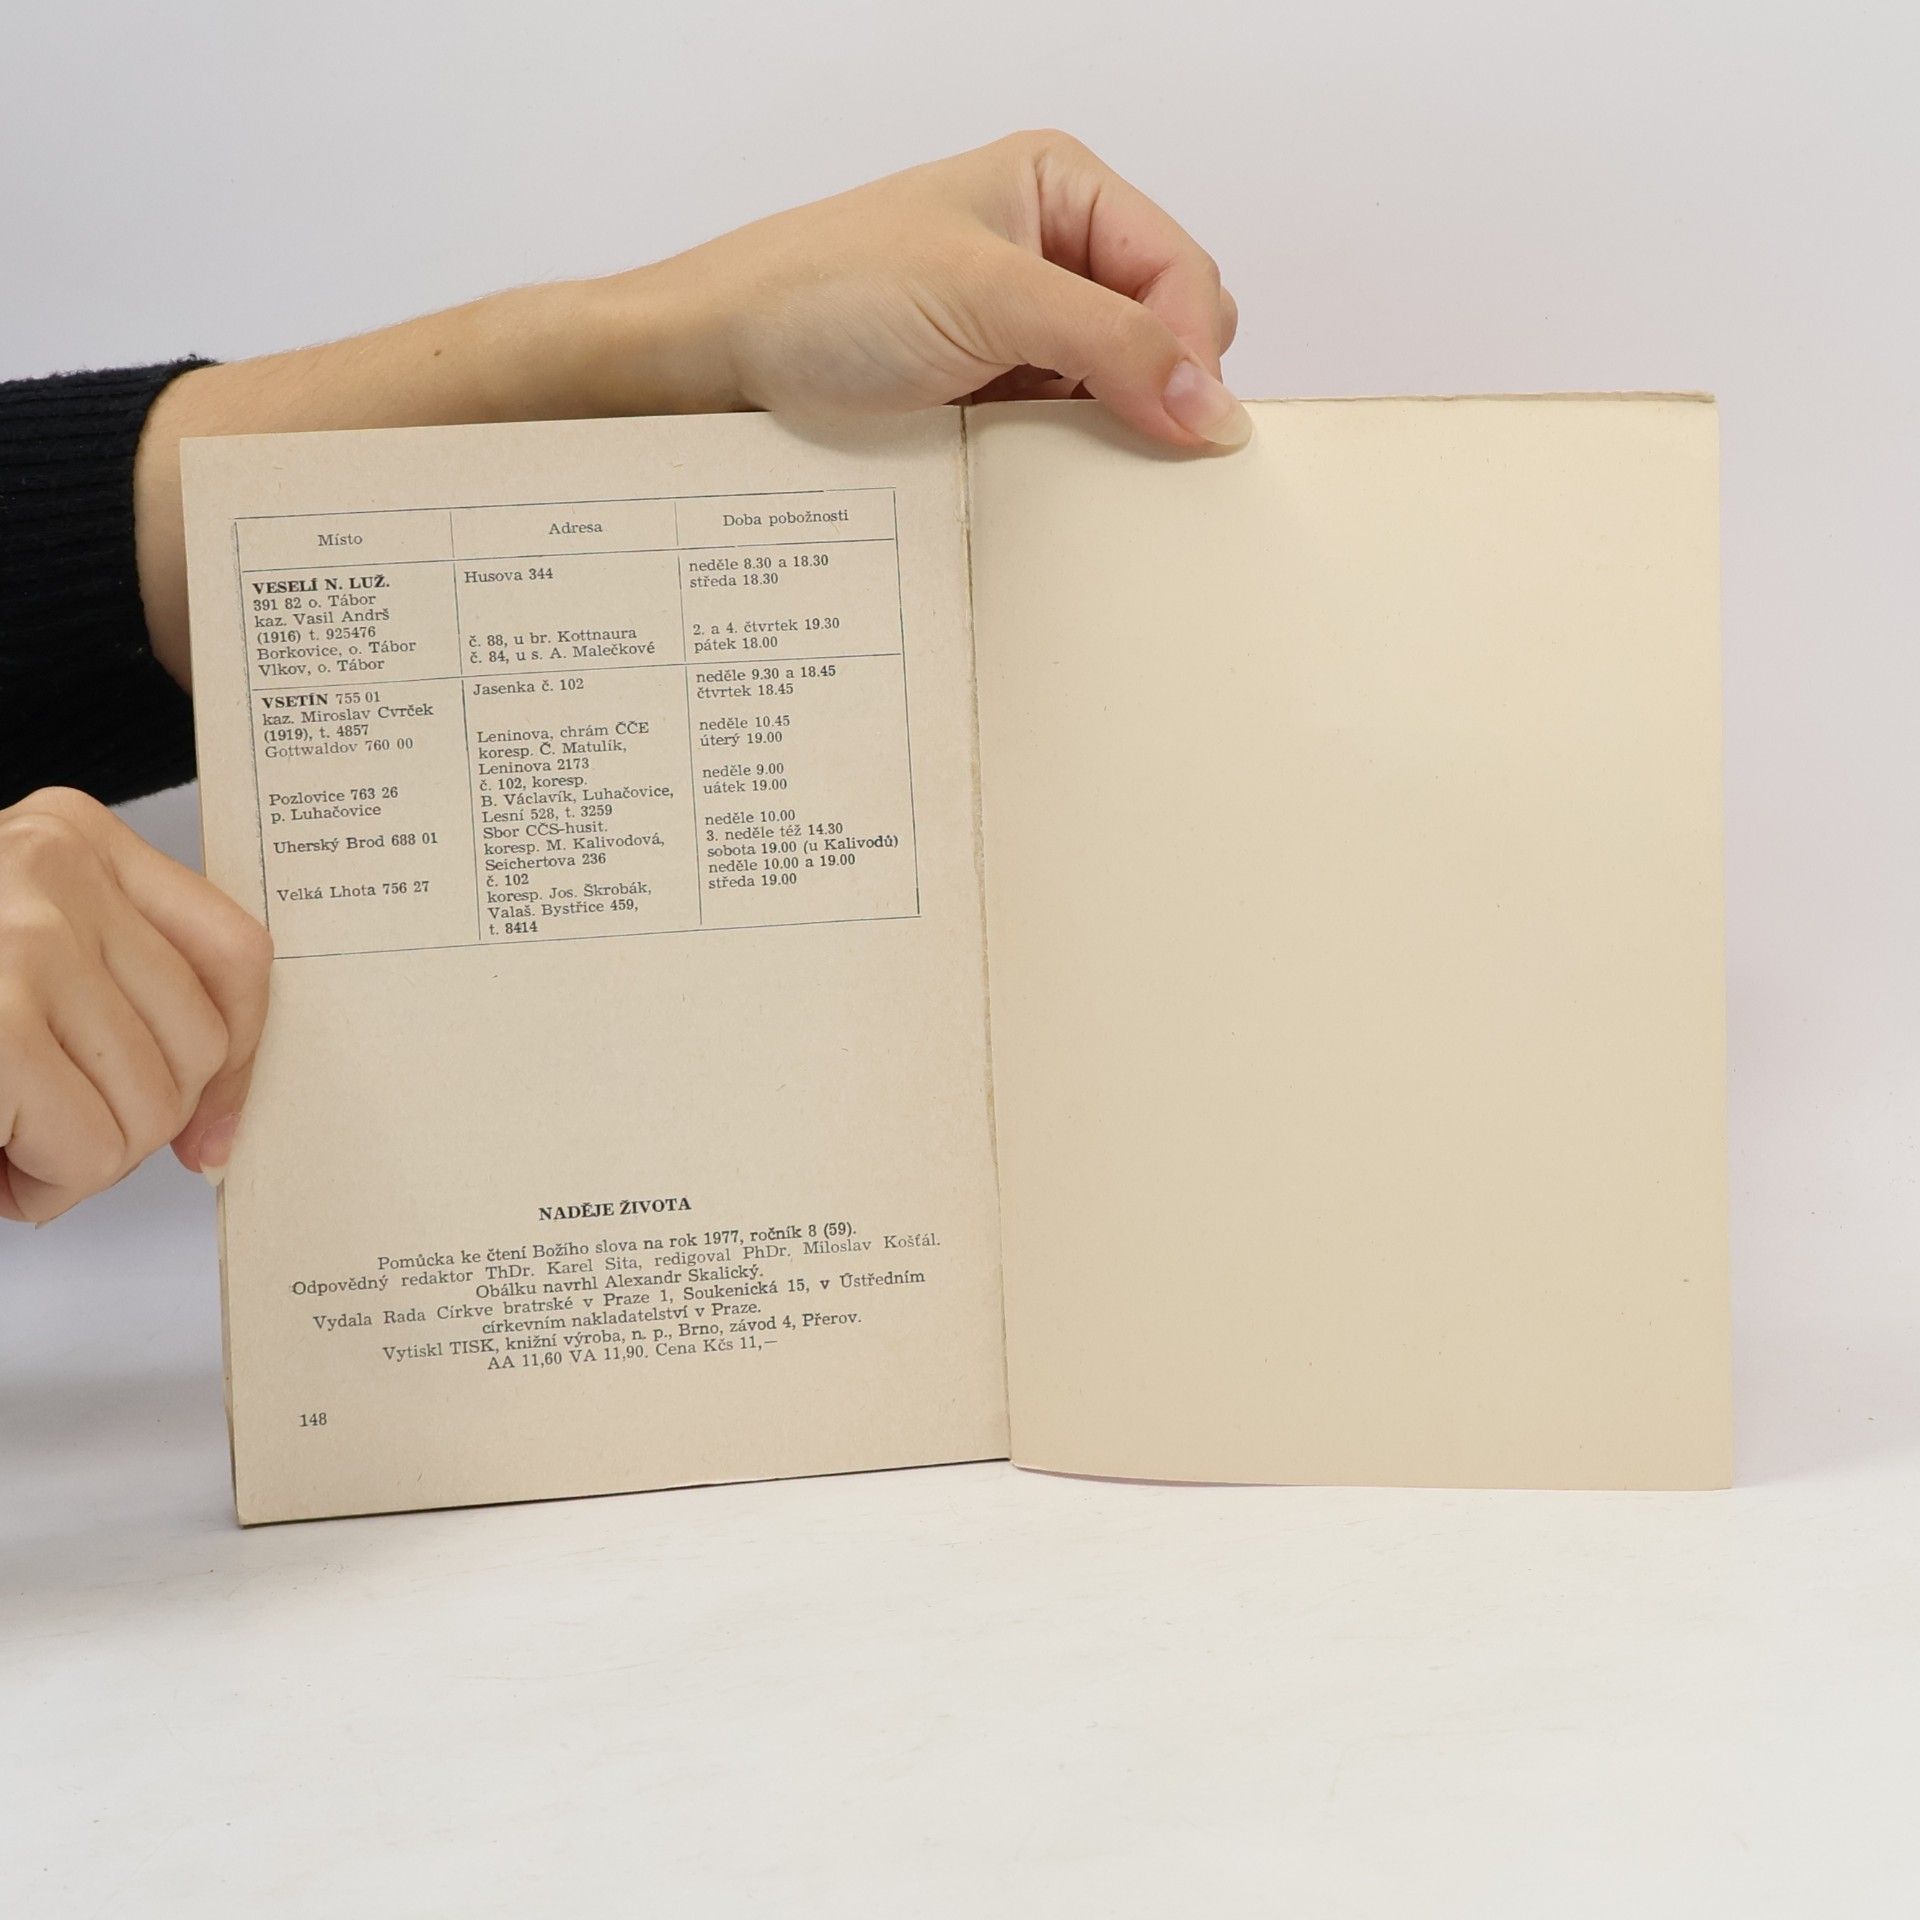 Místo Adresa Doba pobožnosti
VESELÍ N. LUŽ.
391 82 o. Tábor
kaz. Vasil Andrš
(1916) t. 925476
Borkovice, o. Tábor
Vlkov, o. Tábor
Husova 344
č. 88, u br. Kottnaura
č. 84, u s. A. Malečkové
neděle 8.30 a 18.30
středa 18.30
2. a 4. čtvrtek 19.30
pátek 18.00
VSETÍN 755 01
kaz. Miroslav Cvrček
(1919), t. 4857
Gottwaldov 760 00
Pozlovice 763 26
p. Luhačovice
Uherský Brod 688 01
Velká Lhota 756 27
Jasenka č. 102
Leninova, chrám ČČE
koresp. Č. Matulík,
Leninova 2173
č. 102, koresp.
B. Václavík, Luhačovice,
Lesní 528, t. 3259
Sbor CČS-husit.
koresp. M. Kalivodová,
Seichertova 236
č. 102
koresp. Jos. Škrobák,
Valaš. Bystřice 459,
t. 8414
neděle 9.30 a 18.45
čtvrtek 18.45
neděle 10.45
úterý 19.00
neděle 9.00
uátek 19.00
neděle 10.00
3. neděle též 14.30
sobota 19.00 (u Kalivodů)
neděle 10.00 a 19.00
středa 19.00
NADĚJE ŽIVOTA
Pomůcka ke čtení Božího slova na rok 1977, ročník 8 (59).
Odpovědný redaktor ThDr. Karel Sita, redigoval PhDr. Miloslav Košťál.
Obálku navrhl Alexandr Skalický.
Vydala Rada Církve bratrské v Praze 1, Soukenická 15, v Ústředním
církevním nakladatelství v Praze.
Vytiskl TISK, knižní výroba, n. p., Brno, závod 4, Přerov.
AA 11,60 VA 11,90. Cena Kčs 11,—
148